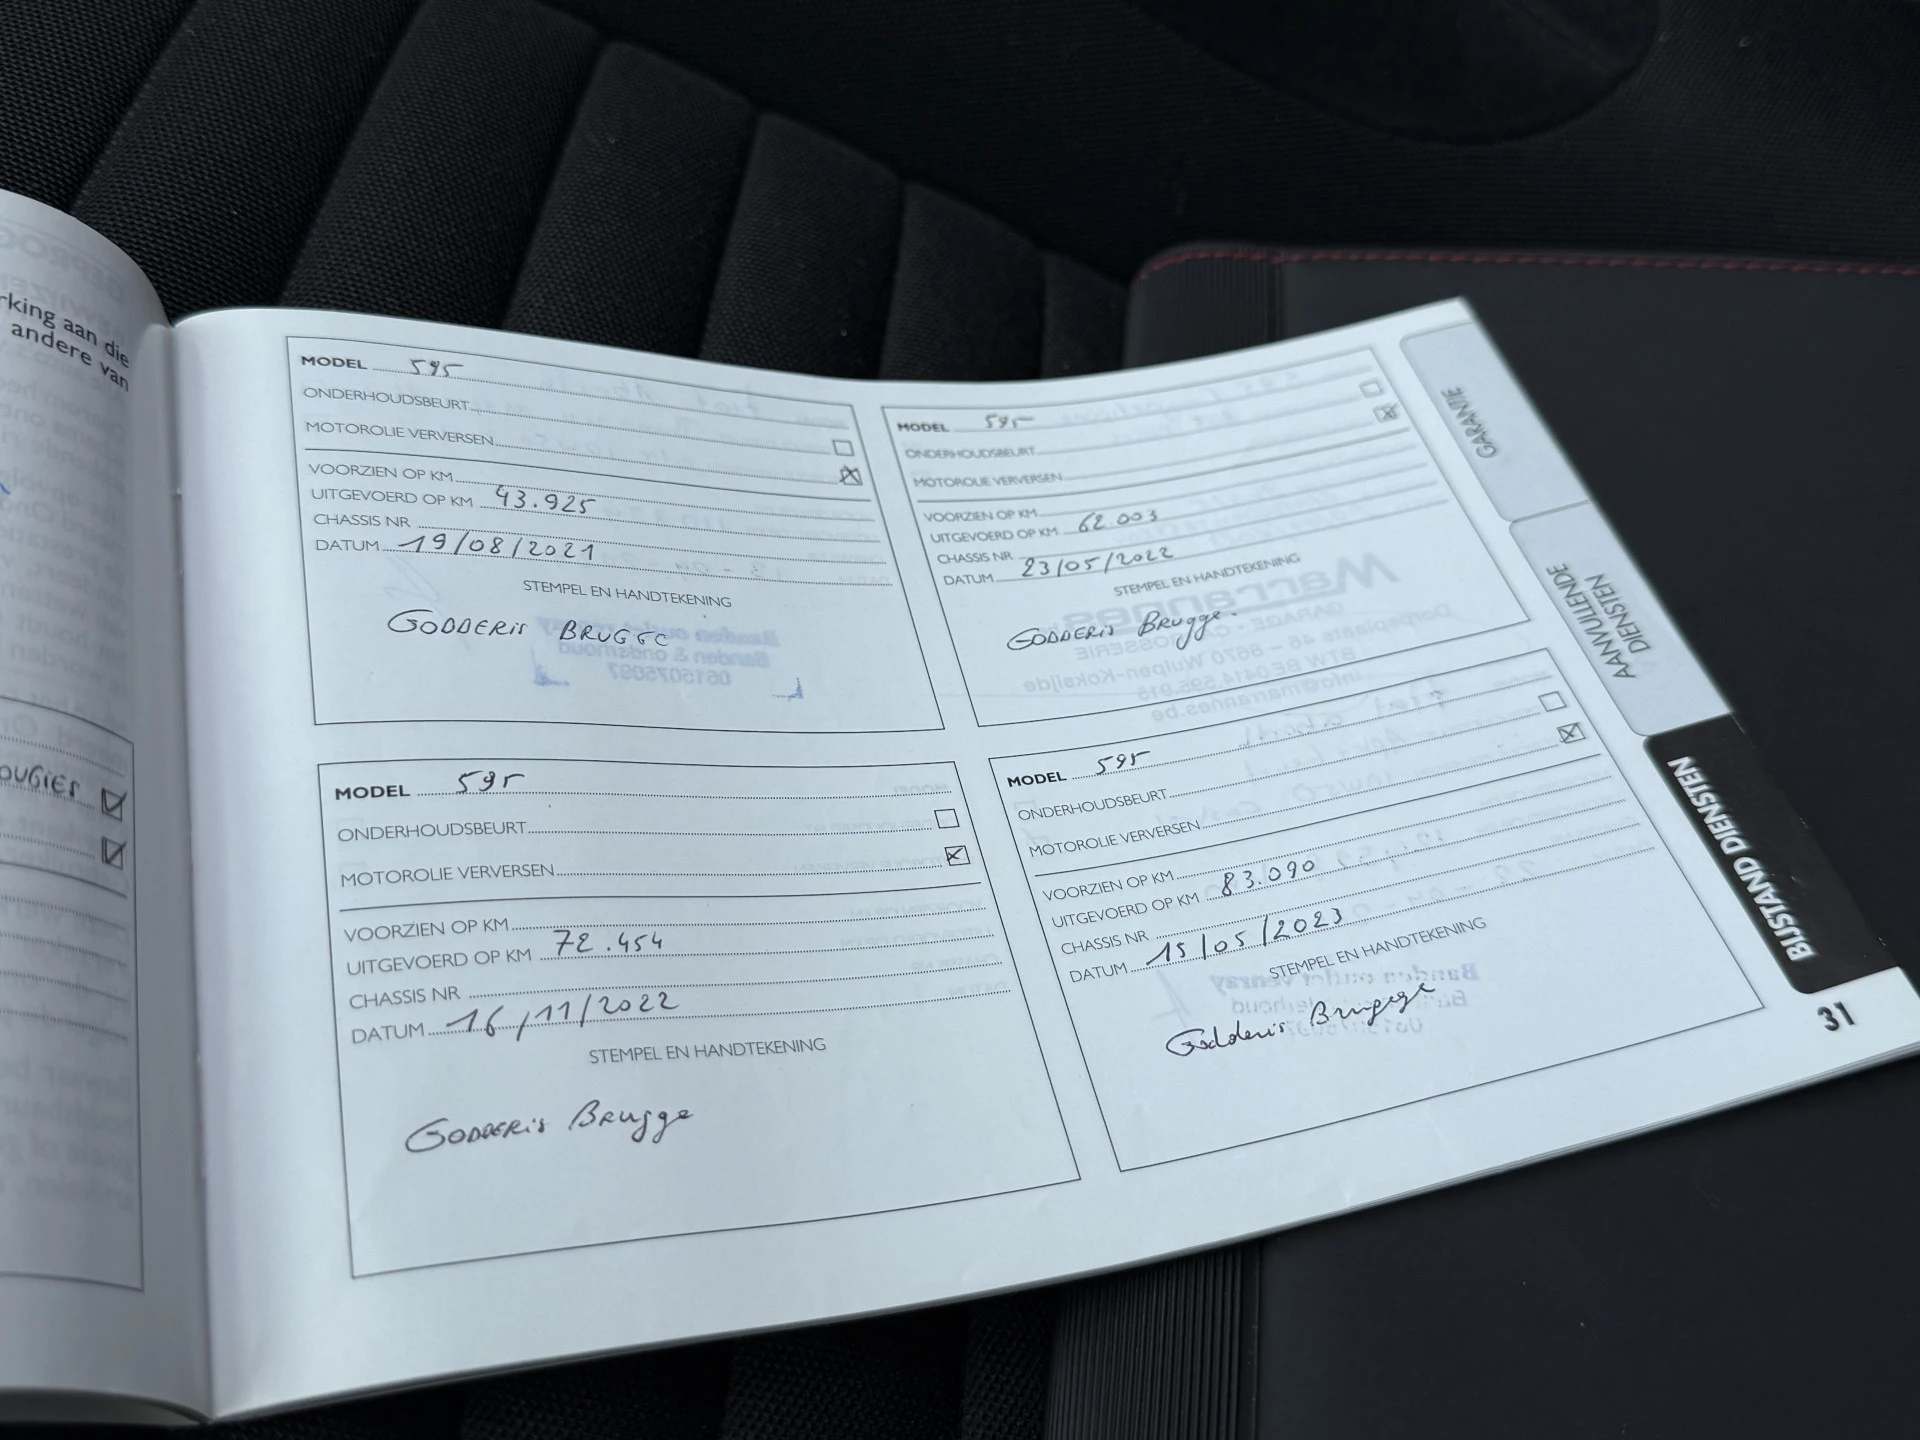 rking aan die
andere van
MODEL 595
ONDERHOUDSBEURT
MOTOROLIE VERVERSEN
VOORZIEN OP KM
UITGEVOERD OP KM 43.925
CHASSIS NR
DATUM 19/08/2021
STEMPEL EN HANDTEKENING
GODDERIS BRUGGE
MODEL 595
ONDERHOUDSBEURT
MOTOROLIE VERVERSEN
VOORZIEN OP KM
UITGEVOERD OP KM 62.003
CHASSIS NR
DATUM 23/05/2022
STEMPEL EN HANDTEKENING
GODDERIS Brugge.
OUGIES
MODEL 595
ONDERHOUDSBEURT
MOTOROLIE VERVERSEN
VOORZIEN OP KM
UITGEVOERD OP KM 72.454
CHASSIS NR
DATUM 16/11/2022
STEMPEL EN HANDTEKENING
GODDERis Brugge
MODEL 595
ONDERHOUDSBEURT
MOTOROLIE VERVERSEN
VOORZIEN OP KM
UITGEVOERD OP KM 83.090
CHASSIS NR
DATUM 15/05/2023
STEMPEL EN HANDTEKENING
Godderis Brugge
GARANTIE
AANVULLENDE
DIENSTEN
BIJSTAND DIENSTEN
31